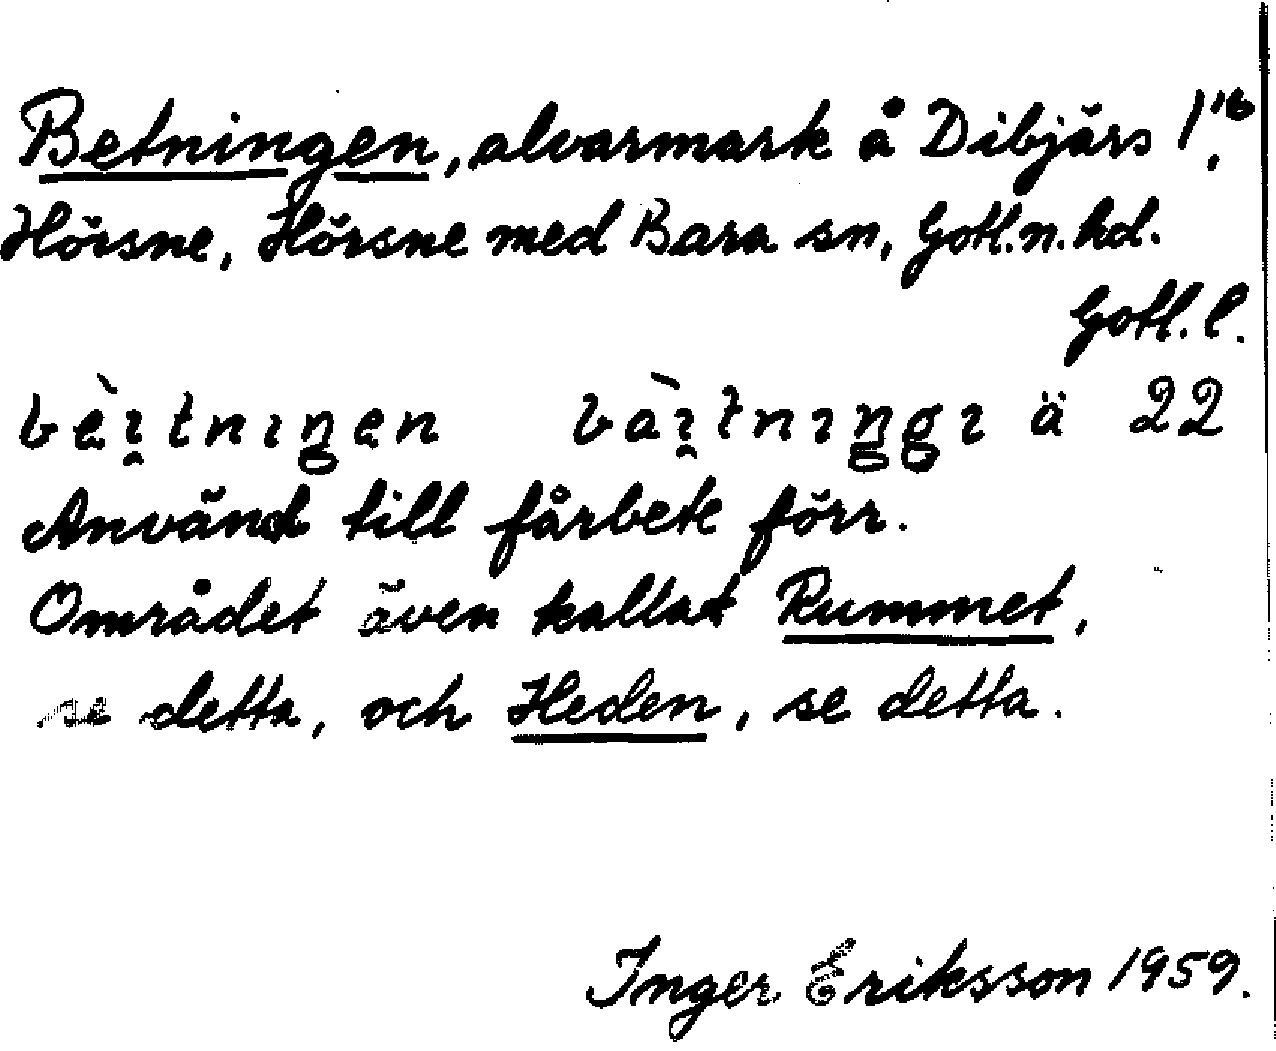 Betningen, alvarmark å Dibjärs 1:16,
Hörsne, Hörsne med Bara sn, Gotl.n.hd.
Gotl.l.
ä 22
Använd till fårbete förr.
Området även kallat Rummet,
se detta, och Heden, se detta.
Inger Eriksson 1959.